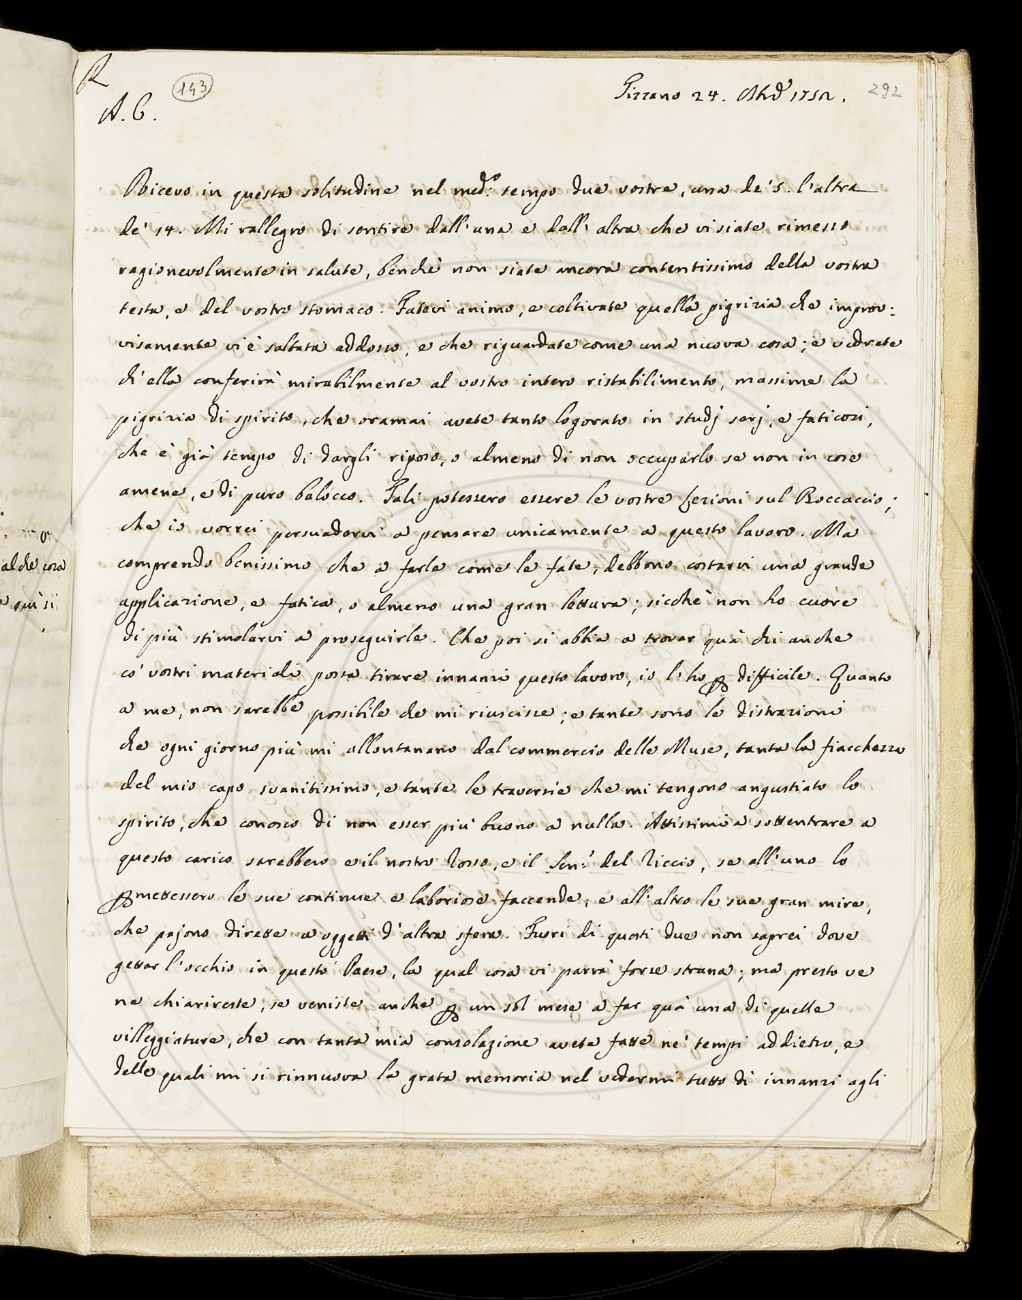 R
143
A. C.
292
Ricevo in questa solitudine nel med.º tempo due vostre, una de' 5. l'altra
de' 14. Mi rallegro di sentire dall'una e dall'altra che vi siate rimesso
ragionevolmente in salute, benchè non siate ancora contentissimo della vostra
testa, e del vostro stomaco. Fatevi animo, e coltivate quella pigrizia che improv:
visamente vi è saltata addosso, e che riguardate come una nuova cosa; e vedrete
ch'ella conferirà mirabilmente al vostro intero ristabilimento, massime la
pigrizia di spirito, che oramai avete tanto logorato in studj serj, e faticosi,
che è già tempo di dargli riposo, o almeno di non occuparlo se non in cose
amene, e di puro balocco. Tali potessero essere le vostre Lezioni sul Boccaccio;
che io vorrei persuadervi a pensare unicamente a questo lavoro. Ma
comprendo benissimo che a farle come le fate, debbono costarvi una grande
applicazione, e fatica, o almeno una gran lettura; sicchè non ho cuore
di più stimolarvi a proseguirle. Che poi si abbia a trovar quà chi anche
co' vostri materiali possa tirare innanzi questo lavoro, io l'ho ꝑ difficile. Quanto
a me, non sarebbe possibile che mi riuscisse; e tante sono le distrazioni
che ogni giorno più mi allontanano dal commercio delle Muse, tanta la fiacchezza
del mio capo svanitissimo, e tante le traversie che mi tengono angustiato lo
spirito, che conosco di non esser più buono a nulla. Attissimi a sottentrare a
questo carico sarebbero e il nostro Rosso, e il Sen.r del Riccio, se all'uno lo
ꝑmettessero le sue continue e laboriose faccende, e all'altro le sue gran mire,
che pajono dirette a oggetti d'altra sfera. Fuori di questi due non saprei dove
gettar l'occhio in questo Paese, la qual cosa vi parrà forse strana; ma presto ve
ne chiarireste, se veniste anche ꝑ un sol mese a far quà una di quelle
villeggiature, che con tanta mia consolazione avete fatte ne' tempi addietro, e
delle quali mi si rinnuova la grata memoria nel vedermi tutto dì innanzi agli
al che cosa